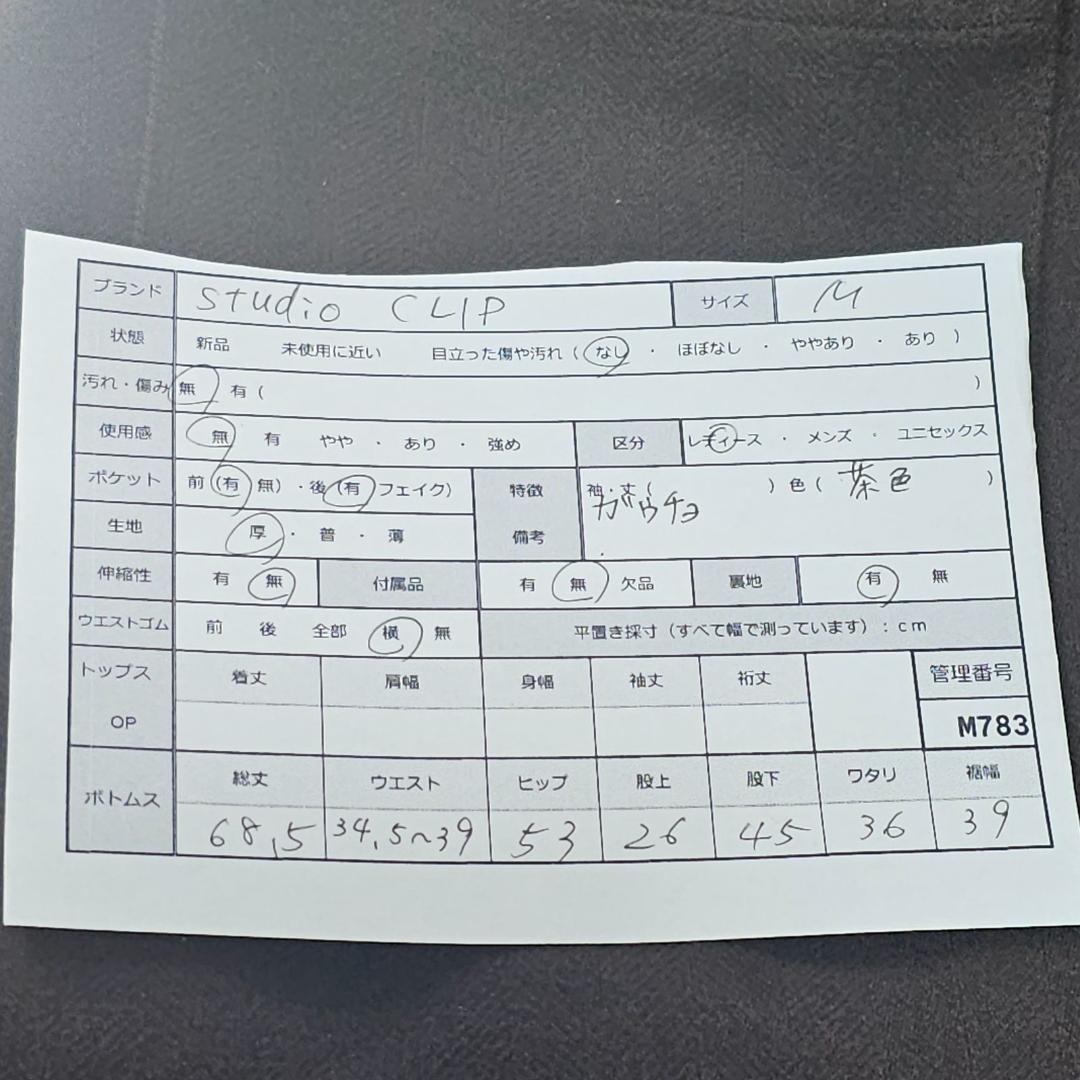 ブランド studio CLIP サイズ M
状態 新品 未使用に近い 目立った傷や汚れ ( なし ・ ほぼなし ・ ややあり ・ あり )
汚れ・傷み 無 有 ( )
使用感 無 有 やや ・ あり ・ 強め 区分 レディース ・ メンズ ・ ユニセックス
ポケット 前 (有 無) ・後 (有 フェイク) 特徴 袖・丈 ( ) 色 ( 茶色 )
ガウチョ
生地 厚 ・ 普 ・ 薄 備考
伸縮性 有 無 付属品 有 無 欠品 裏地 有 無
ウエストゴム 前 後 全部 横 無 平置き採寸 (すべて幅で測っています) : cm
トップス 着丈 肩幅 身幅 袖丈 裄丈 管理番号
OP M783
ボトムス 総丈 ウエスト ヒップ 股上 股下 ワタリ 裾幅
68,5 34,5~39 53 26 45 36 39